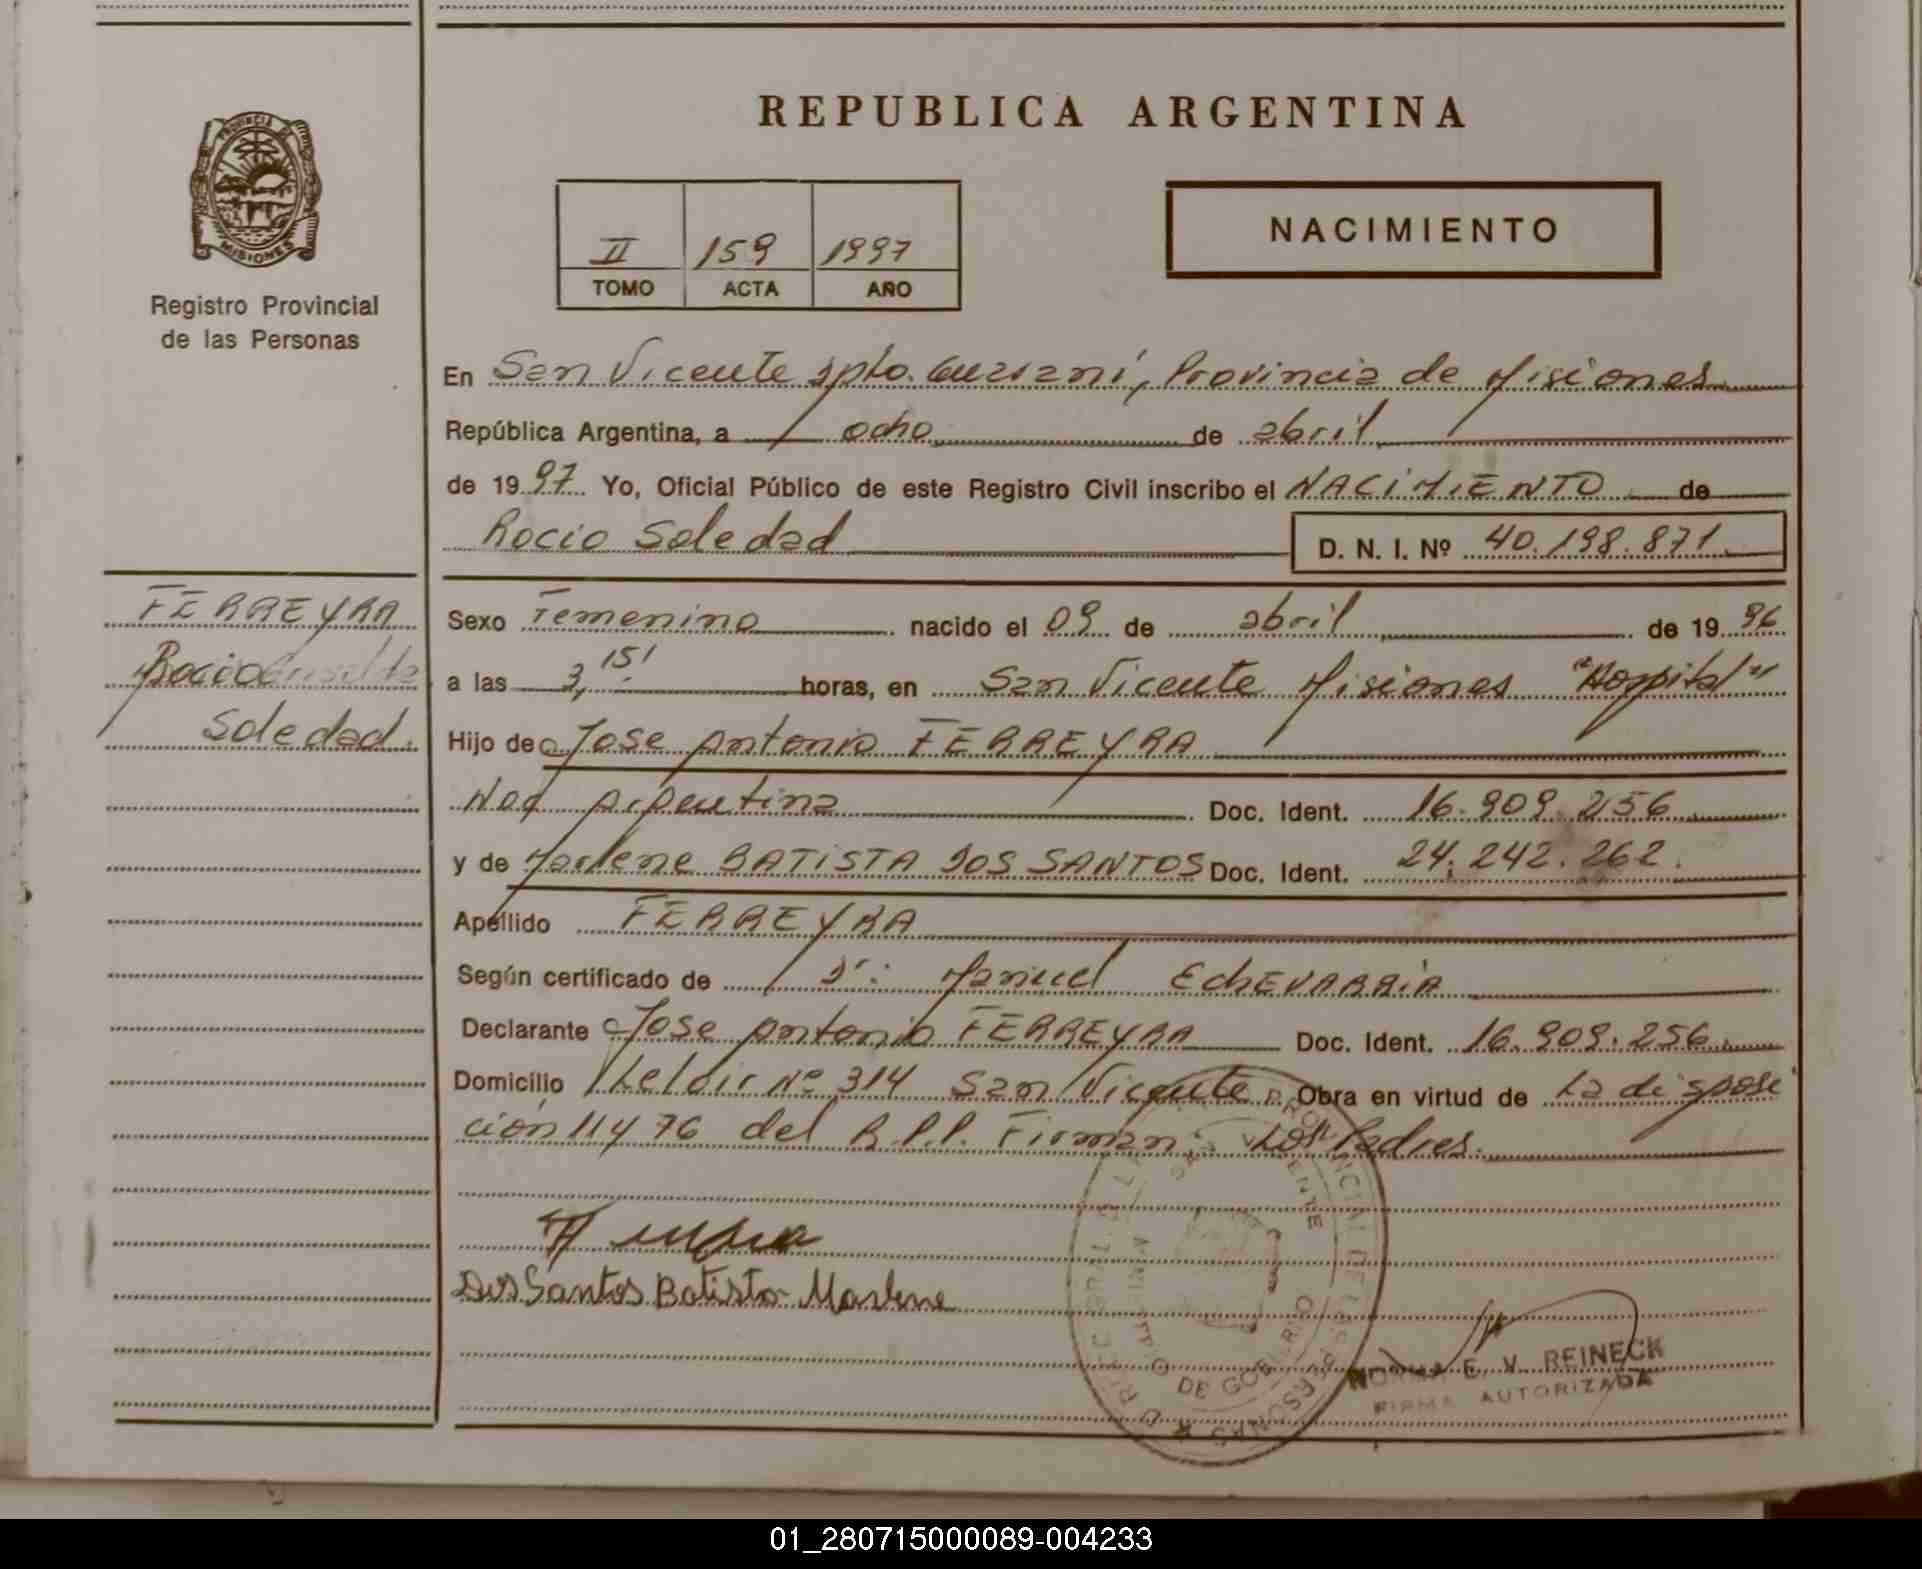 REPUBLICA ARGENTINA
PROVINCIA DE
MISIONES
Registro Provincial
de las Personas
NACIMIENTO
II 159 1997
TOMO ACTA AÑO
En San Vicente Dpto. Guaraní, Provincia de Misiones
República Argentina, a ocho de abril
de 1997 Yo, Oficial Público de este Registro Civil inscribo el NACIMIENTO de
Rocio Soledad D. N. I. Nº 40.198.871
FERREYRA
Rocio
Soledad.
Sexo Femenino nacido el 09 de abril de 1996
a las 3,15' horas, en San Vicente Misiones "Hospital"
Hijo de Jose Antonio FERREYRA
Nac Argentina Doc. Ident. 16.909.256
y de Marlene BATISTA DOS SANTOS Doc. Ident. 24.242.262.
Apellido FERREYRA
Según certificado de Dr: Manuel EchEVARRIA
Declarante Jose Antonio FERREYRA Doc. Ident. 16.909.256.
Domicilio Leloir Nº 314 San Vicente Obra en virtud de La disposi
ción 114/76 del R.P.P. Firman: Los Padres.
Dos Santos Batista Marlene
SAN VICENTE
NORMA E. V. REINECK
FIRMA AUTORIZADA
01_280715000089-004233